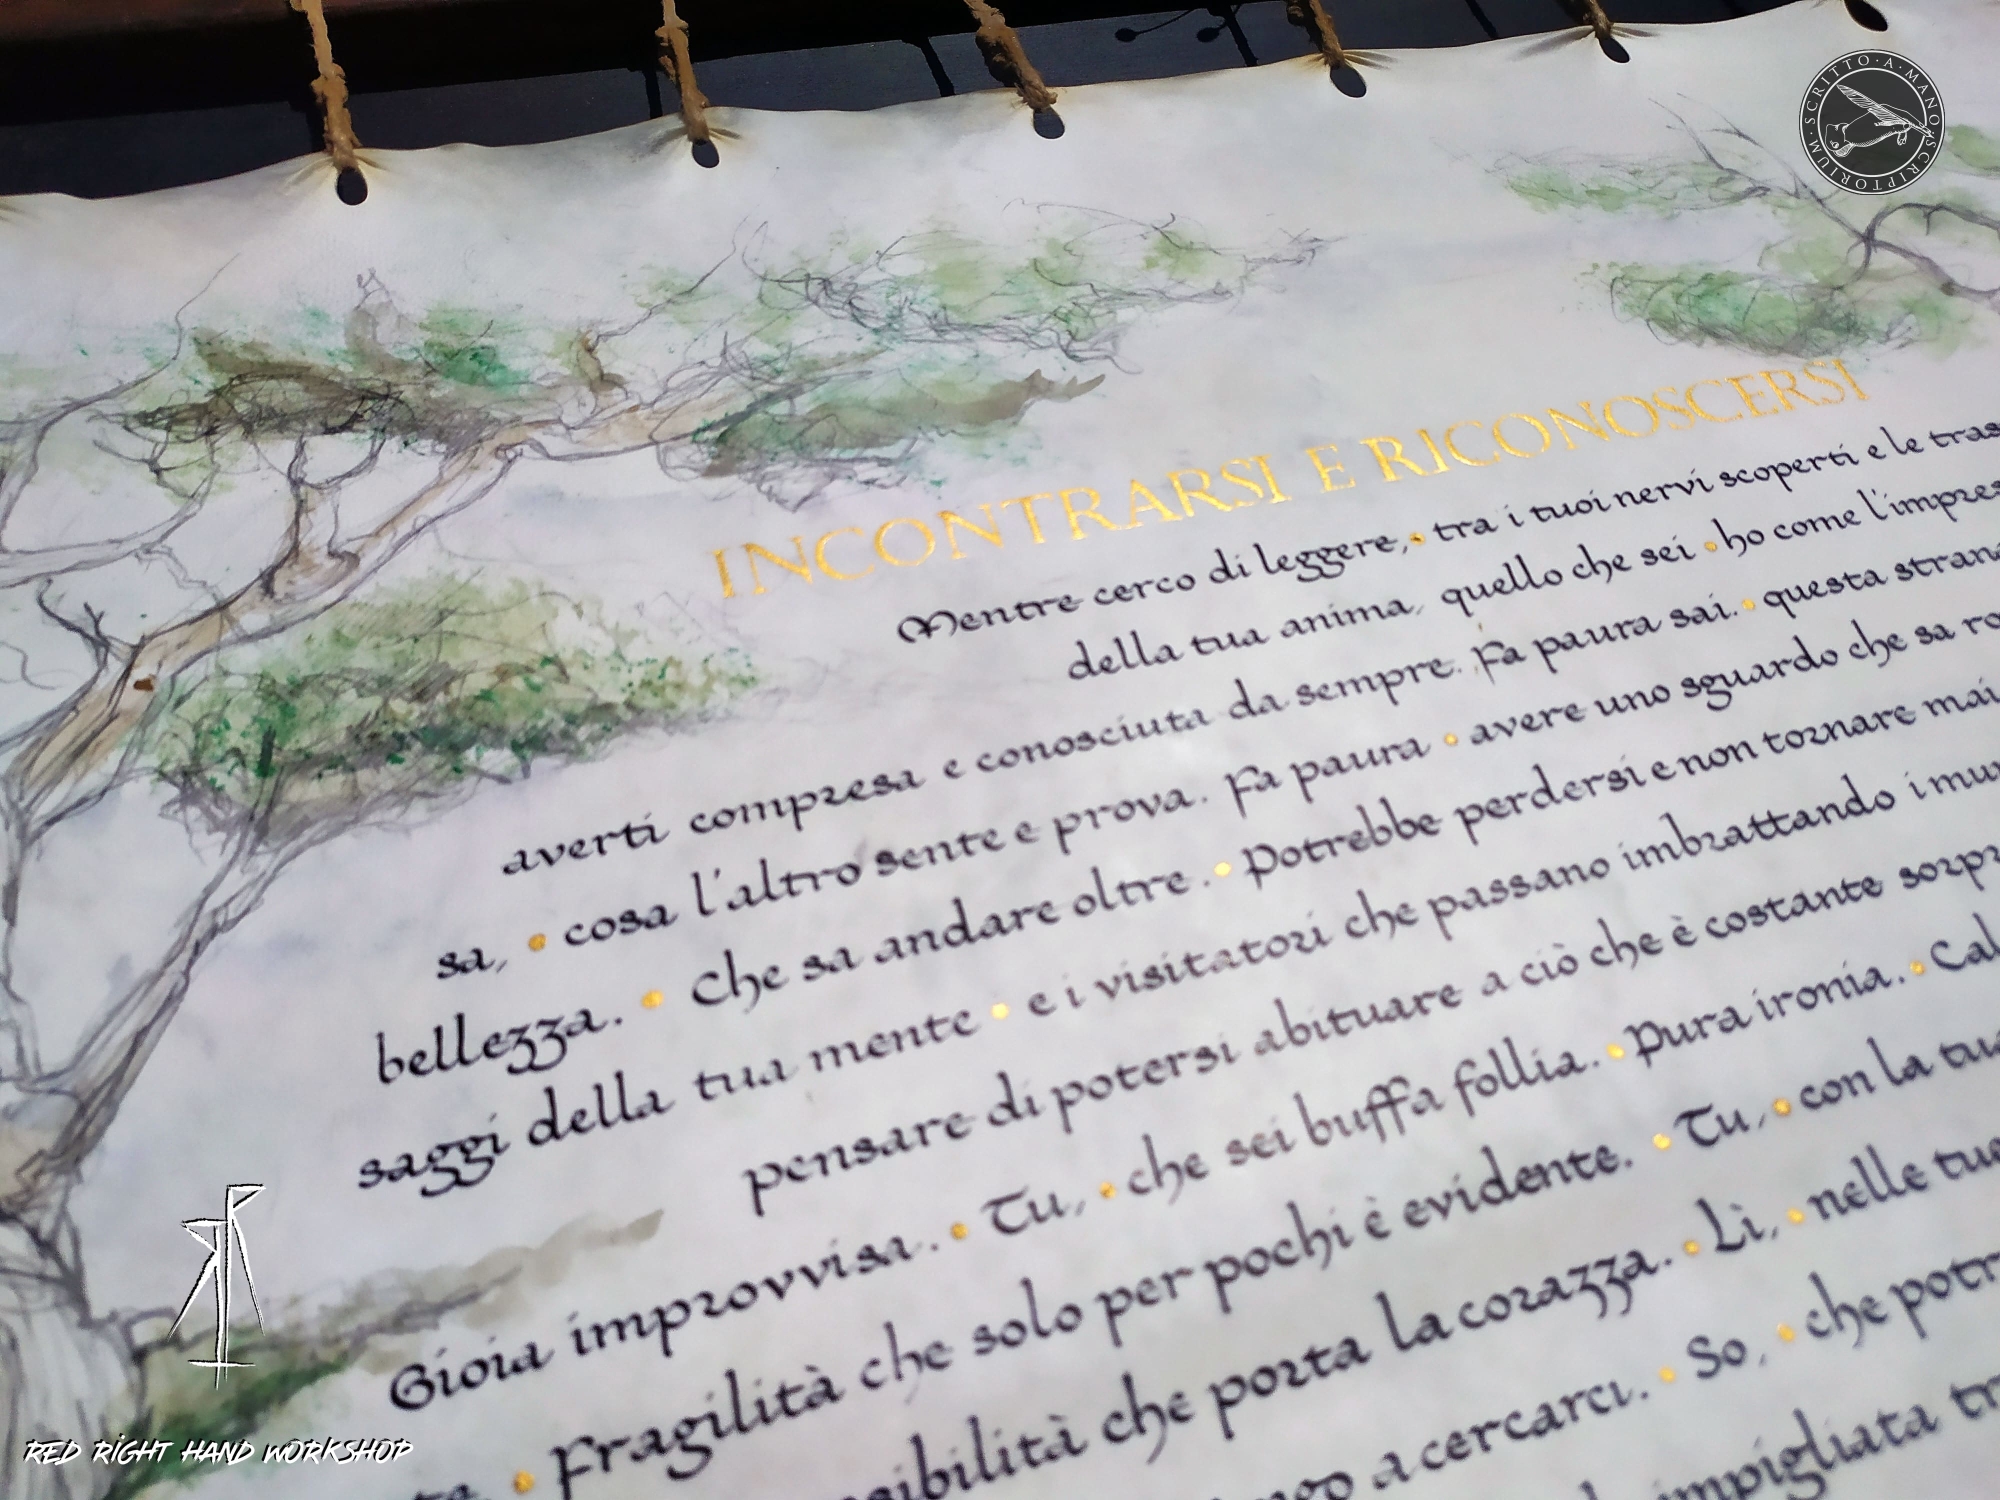 SCRITTO·A·MANO·SCRIPTORIUM·
INCONTRARSI E RICONOSCERSI
Mentre cerco di leggere, • tra i tuoi nervi scoperti e le tras
della tua anima, quello che sei • ho come l'impres
averti compresa e conosciuta da sempre. Fa paura sai. • questa strana
sa, • cosa l'altro sente e prova. Fa paura • avere uno sguardo che sa ro
bellezza. • Che sa andare oltre. • Potrebbe perdersi e non tornare mai
saggi della tua mente • e i visitatori che passano imbrattando i mur
pensare di potersi abituare a ciò che è costante sorpr
Gioia improvvisa. • Tu, • che sei buffa follia. • Pura ironia. • Cal
Fragilità che solo per pochi è evidente. • Tu, • con la tua
sibilità che porta la corazza. • Lì, • nelle tue
a cercarci. • So, • che potr
impigliata tr
RED RIGHT HAND WORKSHOP